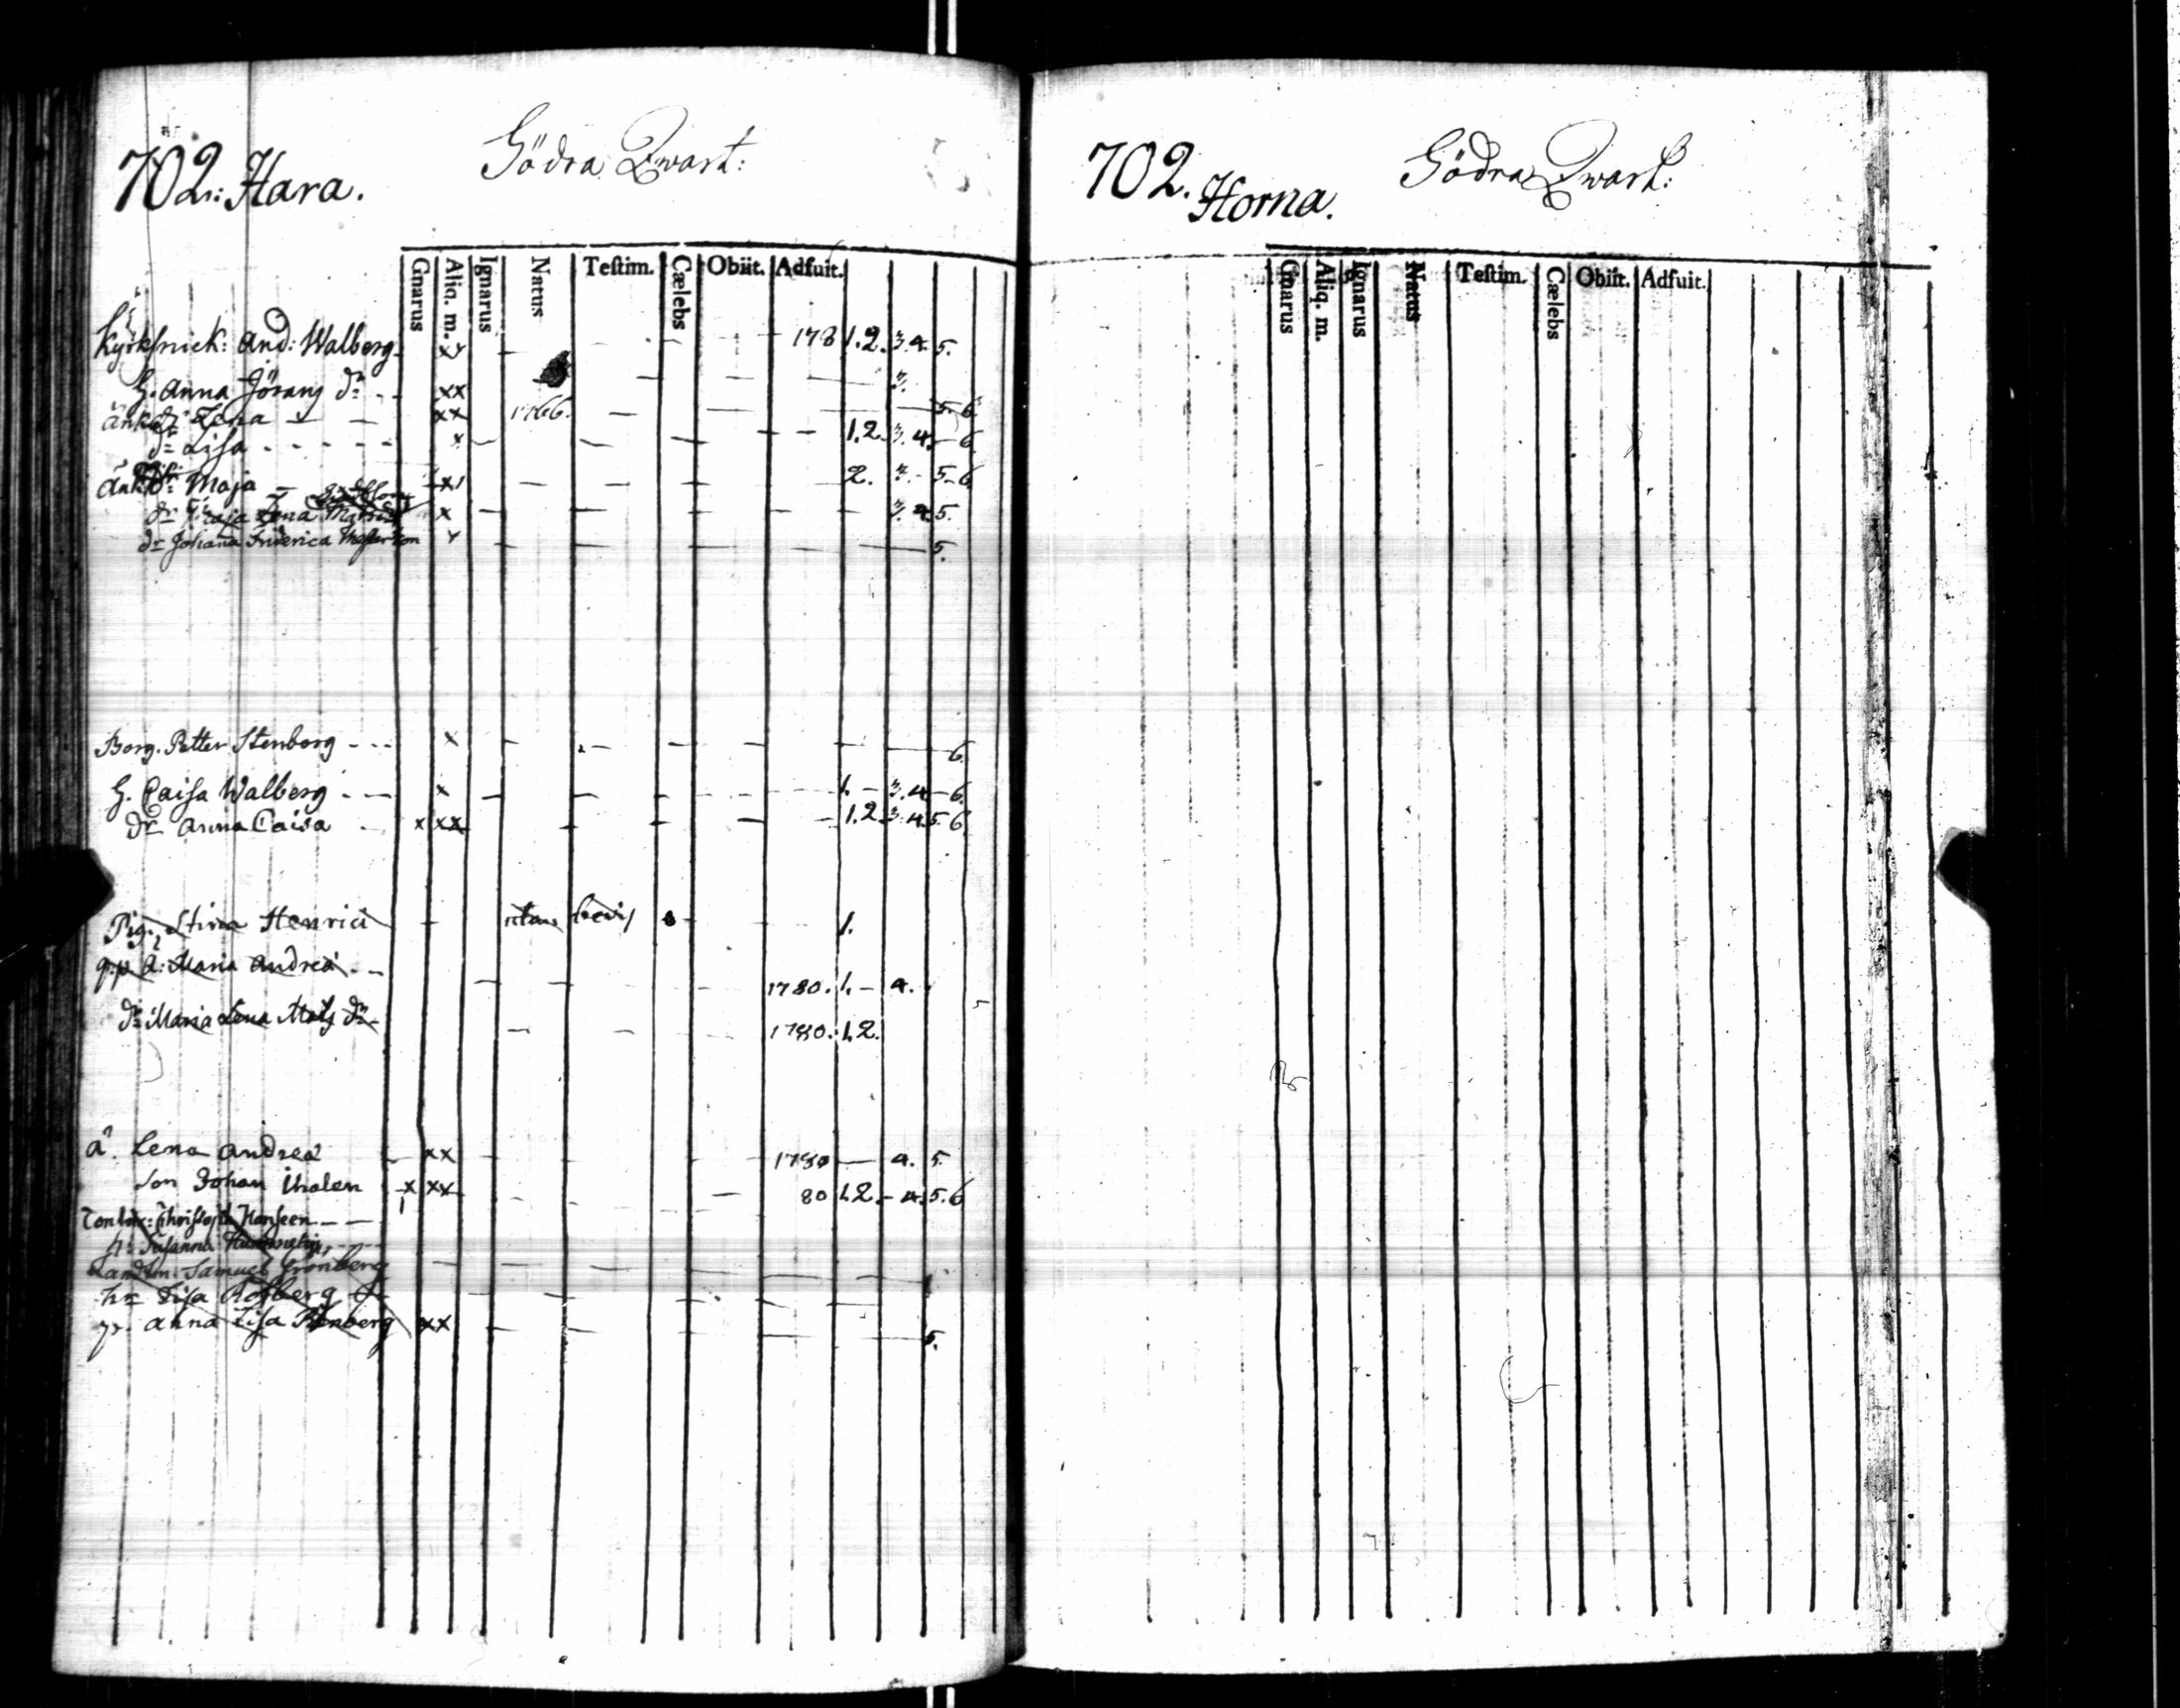 702: Hara. Södra Qwart:
Gnarus Aliq. m. Ignarus Natus Teſtim. Cælebs Obiit. Adfuit.
Kyrkſnick: And: Walberg - xx 178 1. 2. 3. 4. 5.
H. Anna Jörans dr - - xx 3.
änk. dr Lena - - xx 1766. 5 - 6
dr Liſa - - - - x 1. 2. 3. 4. - 6
änk. dr Maja - 2. 3. - 5 - 6
dr Lena x 3. 4. 5.
dr Johana Friderica x 5.
Borg. Petter Stenborg - - - x 6
H. Caiſa Walberg - - x 1. - 3. 4. - 6
dr Anna Caisa - x xx 1. 2. 3. 4. 5. 6
Pig. Stina Henrici 1.
Maria Andreæ - - 1780. 1. - 4.
dr Maria Lena Mats dr - 1780. 1. 2.
Lena Andreæ xx 1780 4. 5.
son Johan Thalen x xx 80 1. 2. - 4. 5. 6
Christoph Hanseen - -
Susanna
Samuel Grönberg
Liſa
Anna Liſa xx 5.
702. Horna. Södra Qwart:
Gnarus Aliq. m. Ignarus Natus Teſtim. Cælebs Obiit. Adfuit.